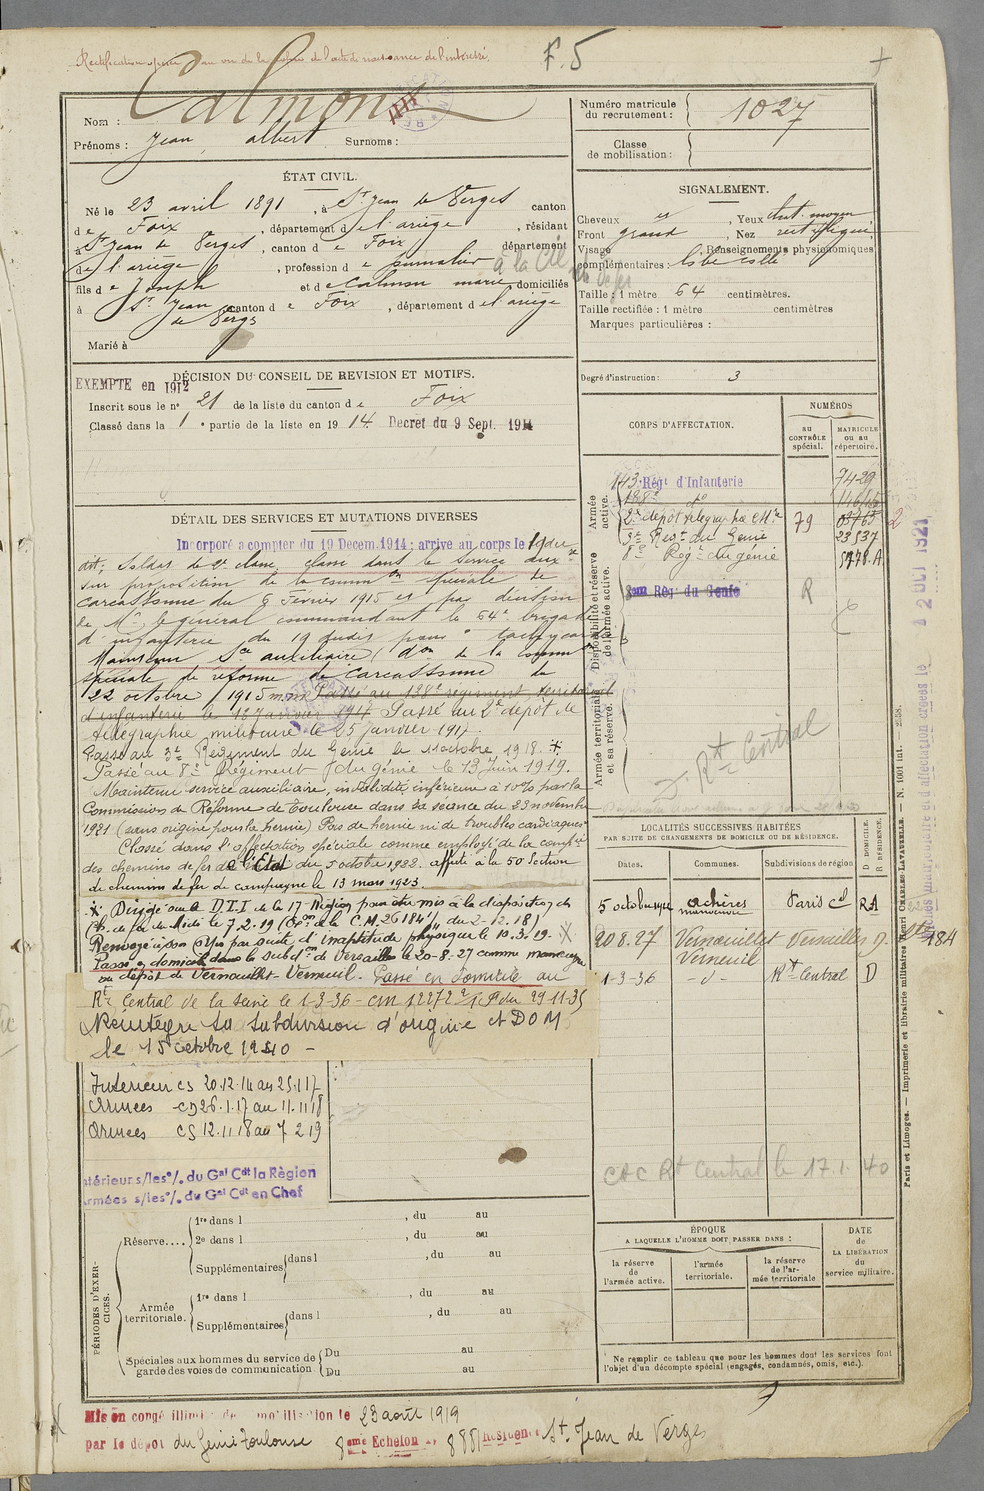 Rectification opérée au vu de l'acte de naissance de l'intéressé.
F. 5
Nom : Calmon
Prénoms : Jean, albert Surnoms :
Numéro matricule du recrutement : 1027
Classe de mobilisation :
ÉTAT CIVIL.
Né le 23 avril 1891, à St Jean de Verges canton
de Foix, département de l'ariège, résidant
à St Jean de Verges, canton de Foix département
de l'ariège, profession de journalier
fils de Joseph et de Calmon marie domiciliés
à St Jean de Vergs canton de Foix, département de l'ariège
Marié à
SIGNALEMENT.
Cheveux Yeux chat. moyen
Front grand, Nez rect.
Visage , Renseignements physionomiques
complémentaires :
Taille : 1 mètre 64 centimètres.
Taille rectifiée : 1 mètre centimètres
Marques particulières :
Degré d'instruction : 3
DÉCISION DU CONSEIL DE REVISION ET MOTIFS.
EXEMPTE en 1912
Inscrit sous le no 21 de la liste du canton de Foix
Classé dans la 1e partie de la liste en 1914 Decret du 9 Sept. 1914
DÉTAIL DES SERVICES ET MUTATIONS DIVERSES
Incorporé a compter du 19 Decem. 1914 : arrive au corps le 19 du
dit, Soldat de 2e classe, classé dans le Service aux.
sur proposition de la comm on spéciale de
Carcassonne du 6 Février 1915 et par décision
de Mr le général commandant le 64e brigade
d'infanterie du 19 dudit pour tachycardie
Maintenu Sce auxiliaire (don de la comm on
spéciale de réforme de Carcassonne du
22 octobre 1915 Passé au 128e régiment territorial
d'infanterie le 18 janvier 1917 Passé au 2e dépôt de
télégraphie militaire le 25 janvier 1917.
Passé au 3e Régiment du Génie le 11 octobre 1918. *
Passé au 8e Régiment du génie le 13 Juin 1919.
Maintenu service auxiliaire, invalidité inférieure à 10% par la
Commission de Réforme de Toulouse dans sa séance du 23 novembre
1921 (sans origine pour la hernie) Pas de hernie ni de troubles cardiaques
Classé dans l'affectation spéciale comme employé de la comp ie
des chemins de fer de l'Etat du 5 octobre 1922. affecté à la 50 Section
de chemins de fer de campagne le 13 mars 1923.
* Dirigé sur le D.T.I de la 17e Région pour être mis à la disposition des
Ch. de fer du Midi le 7.2.19 (Con de la C.M. 26184/ du 2-12.18)
Renvoyé à son Corps par suite d'inaptitude physique le 10.3.19.
Passé en domicile dans la subdon de Versailles le 20-8-27 comme manœuvre
au dépôt de Vernouillet Verneuil. Passé en domicile au
Rt Central de la Seine le 1-3-36 - cm 12272 du 29-11-35
Réintègre sa subdivision d'origine et DOM
le 15 octobre 1940 -
Intérieur CS 20.12.14 au 25.1.17
Armées CD 26.1.17 au 11.11.18
Armées CS 12.11.18 au 7 2.19
Intérieur s/les o/. du Gal Cdt la Région
Armées s/les o/. du Gal Cdt en Chef
CORPS D'AFFECTATION.
NUMÉROS
AU CONTRÔLE spécial.
MATRICULE OU AU répertoire.
Armée active.
143e Régt d'Infanterie 7429
128e do
2e dépôt télégraphie Mre 79
3e Régt du Génie 23537
8e Régt du génie
Disponibilité et réserve de l'armée active.
8eme Rég du Genie R
Armée territoriale et sa réserve.
Rt Central
LOCALITÉS SUCCESSIVES HABITÉES
PAR SUITE DE CHANGEMENTS DE DOMICILE OU DE RÉSIDENCE.
Dates. Communes. Subdivisions de région D DOMICILE. R RÉSIDENCE.
5 octobre 1922 achères manœuvre Paris Cal RA
20.8.27 Vernouillet Verneuil Versailles D.
1-3-36 - d - Rt Central D
184
CAC Rt Central le 17.1.40
ÉPOQUE
A LAQUELLE L'HOMME DOIT PASSER DANS :
la réserve de l'armée active.
l'armée territoriale.
la réserve de l'armée territoriale
DATE de LA LIBÉRATION du service militaire.
Ne remplir ce tableau que pour les hommes dont les services font
l'objet d'un décompte spécial (engagés, condamnés, omis, etc.).
PÉRIODES D'EXERCICES.
Réserve....
1re dans l , du au
2e dans l , du au
Supplémentaires dans l , du au
Armée territoriale.
1re dans l , du au
Supplémentaires dans l , du au
Spéciales aux hommes du service de garde des voies de communication
Du au
Du au
Paris et Limoges. — Imprimerie et librairie militaires Henri CHARLES-LAVAUZELLE. — N. 1001 int. —
12 OCT 1921
Mis en congé illimité de démobilisation le 23 août 1919
par le dépôt du Génie Toulouse 8eme Echelon Résidence St. Jean de Verges